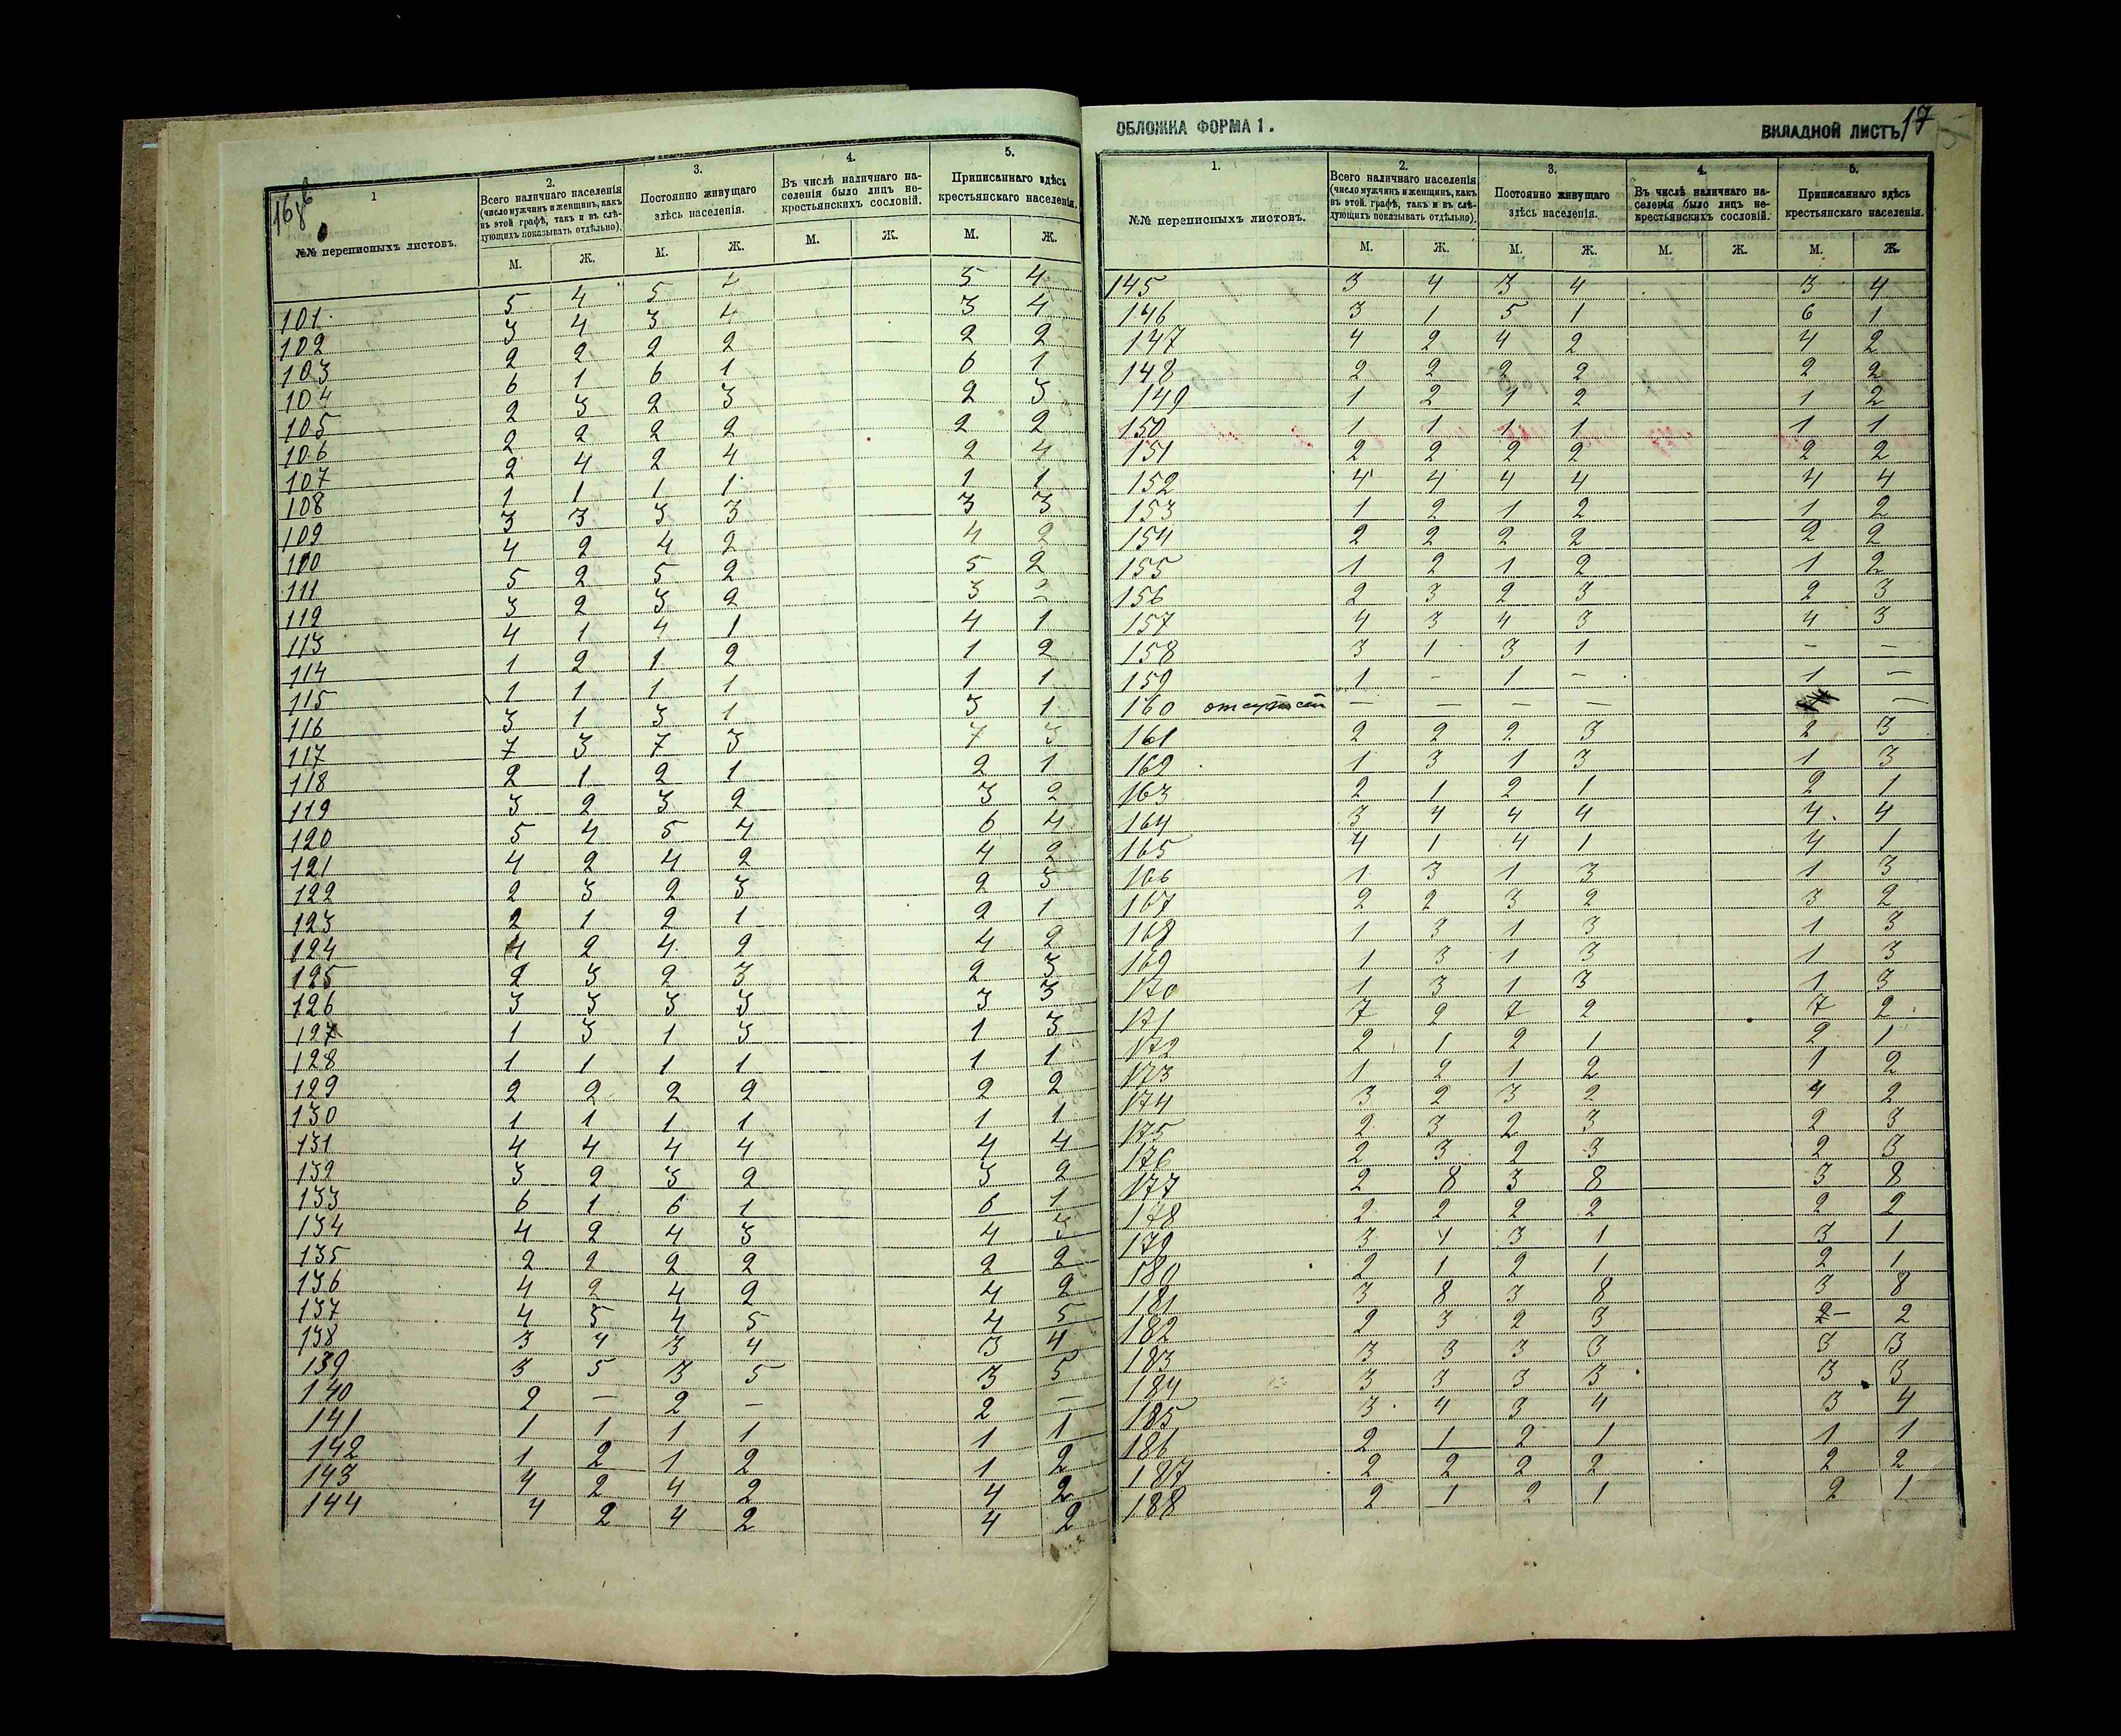 16об
1
2.
3.
4.
5.
№№ переписныхъ листовъ.
Всего наличнаго населенія (число мужчинъ и женщинъ, какъ въ этой графѣ, такъ и въ слѣдующихъ показывать отдѣльно).
Постоянно живущаго здѣсь населенія.
Въ числѣ наличнаго населенія было лицъ некрестьянскихъ сословій.
Приписаннаго здѣсь крестьянскаго населенія.
М. Ж. М. Ж. М. Ж. М. Ж.
101 5 4 5 4 5 4
102 3 4 3 4 3 4
103 2 2 2 2 2 2
104 6 1 6 1 6 1
105 2 3 2 3 2 3
106 2 2 2 2 2 2
107 2 4 2 4 2 4
108 1 1 1 1 1 1
109 3 3 3 3 3 3
110 4 2 4 2 4 2
111 5 2 5 2 5 2
112 3 2 3 2 3 2
113 4 1 4 1 4 1
114 1 2 1 2 1 2
115 1 1 1 1 1 1
116 3 1 3 1 3 1
117 7 3 7 3 7 3
118 2 1 2 1 2 1
119 3 2 3 2 3 2
120 5 4 5 4 6 4
121 4 2 4 2 4 2
122 2 3 2 3 2 3
123 2 1 2 1 2 1
124 4 2 4 2 4 2
125 2 3 2 3 2 3
126 3 3 3 3 3 3
127 1 3 1 3 1 3
128 1 1 1 1 1 1
129 2 2 2 2 2 2
130 1 1 1 1 1 1
131 4 4 4 4 4 4
132 3 2 3 2 3 2
133 6 1 6 1 6 1
134 4 2 4 3 4 3
135 2 2 2 2 2 2
136 4 2 4 2 4 2
137 4 5 4 5 4 5
138 3 4 3 4 3 4
139 3 5 3 5 3 5
140 2 – 2 – 2 –
141 1 1 1 1 1 1
142 1 2 1 2 1 2
143 4 2 4 2 4 2
144 4 2 4 2 4 2
ОБЛОЖКА ФОРМА 1.
ВКЛАДНОЙ ЛИСТЪ 17
1.
2.
3.
4.
5.
№№ переписныхъ листовъ.
Всего наличнаго населенія (число мужчинъ и женщинъ, какъ въ этой графѣ, такъ и въ слѣдующихъ показывать отдѣльно).
Постоянно живущаго здѣсь населенія.
Въ числѣ наличнаго населенія было лицъ некрестьянскихъ сословій.
Приписаннаго здѣсь крестьянскаго населенія.
М. Ж. М. Ж. М. Ж. М. Ж.
145 3 4 3 4 3 4
146 3 1 5 1 6 1
147 4 2 4 2 4 2
148 2 2 2 2 2 2
149 1 2 1 2 1 2
150 1 1 1 1 1 1
151 2 2 2 2 2 2
152 4 4 4 4 4 4
153 1 2 1 2 1 2
154 2 2 2 2 2 2
155 1 2 1 2 1 2
156 2 3 2 3 2 3
157 4 3 4 3 4 3
158 3 1 3 1 – –
159 1 – 1 – 1 –
160 – – – – –
161 2 2 2 3 2 3
162 1 3 1 3 1 3
163 2 1 2 1 2 1
164 3 4 4 4 4 4
165 4 1 4 1 4 1
166 1 3 1 3 1 3
167 2 2 3 2 3 2
168 1 3 1 3 1 3
169 1 3 1 3 1 3
170 1 3 1 3 1 3
171 7 2 7 2 7 2
172 2 1 2 1 2 1
173 1 2 1 2 1 2
174 3 2 3 2 4 2
175 2 3 2 3 2 3
176 2 3 2 3 2 3
177 2 8 3 8 3 8
178 2 2 2 2 2 2
179 3 1 3 1 3 1
180 2 1 2 1 2 1
181 3 8 3 8 3 8
182 2 3 2 3 2 – 2
183 3 3 3 3 3 3
184 3 3 3 3 3 3
185 3 4 3 4 3 4
186 2 1 2 1 1 1
187 2 2 2 2 2 2
188 2 1 2 1 2 1